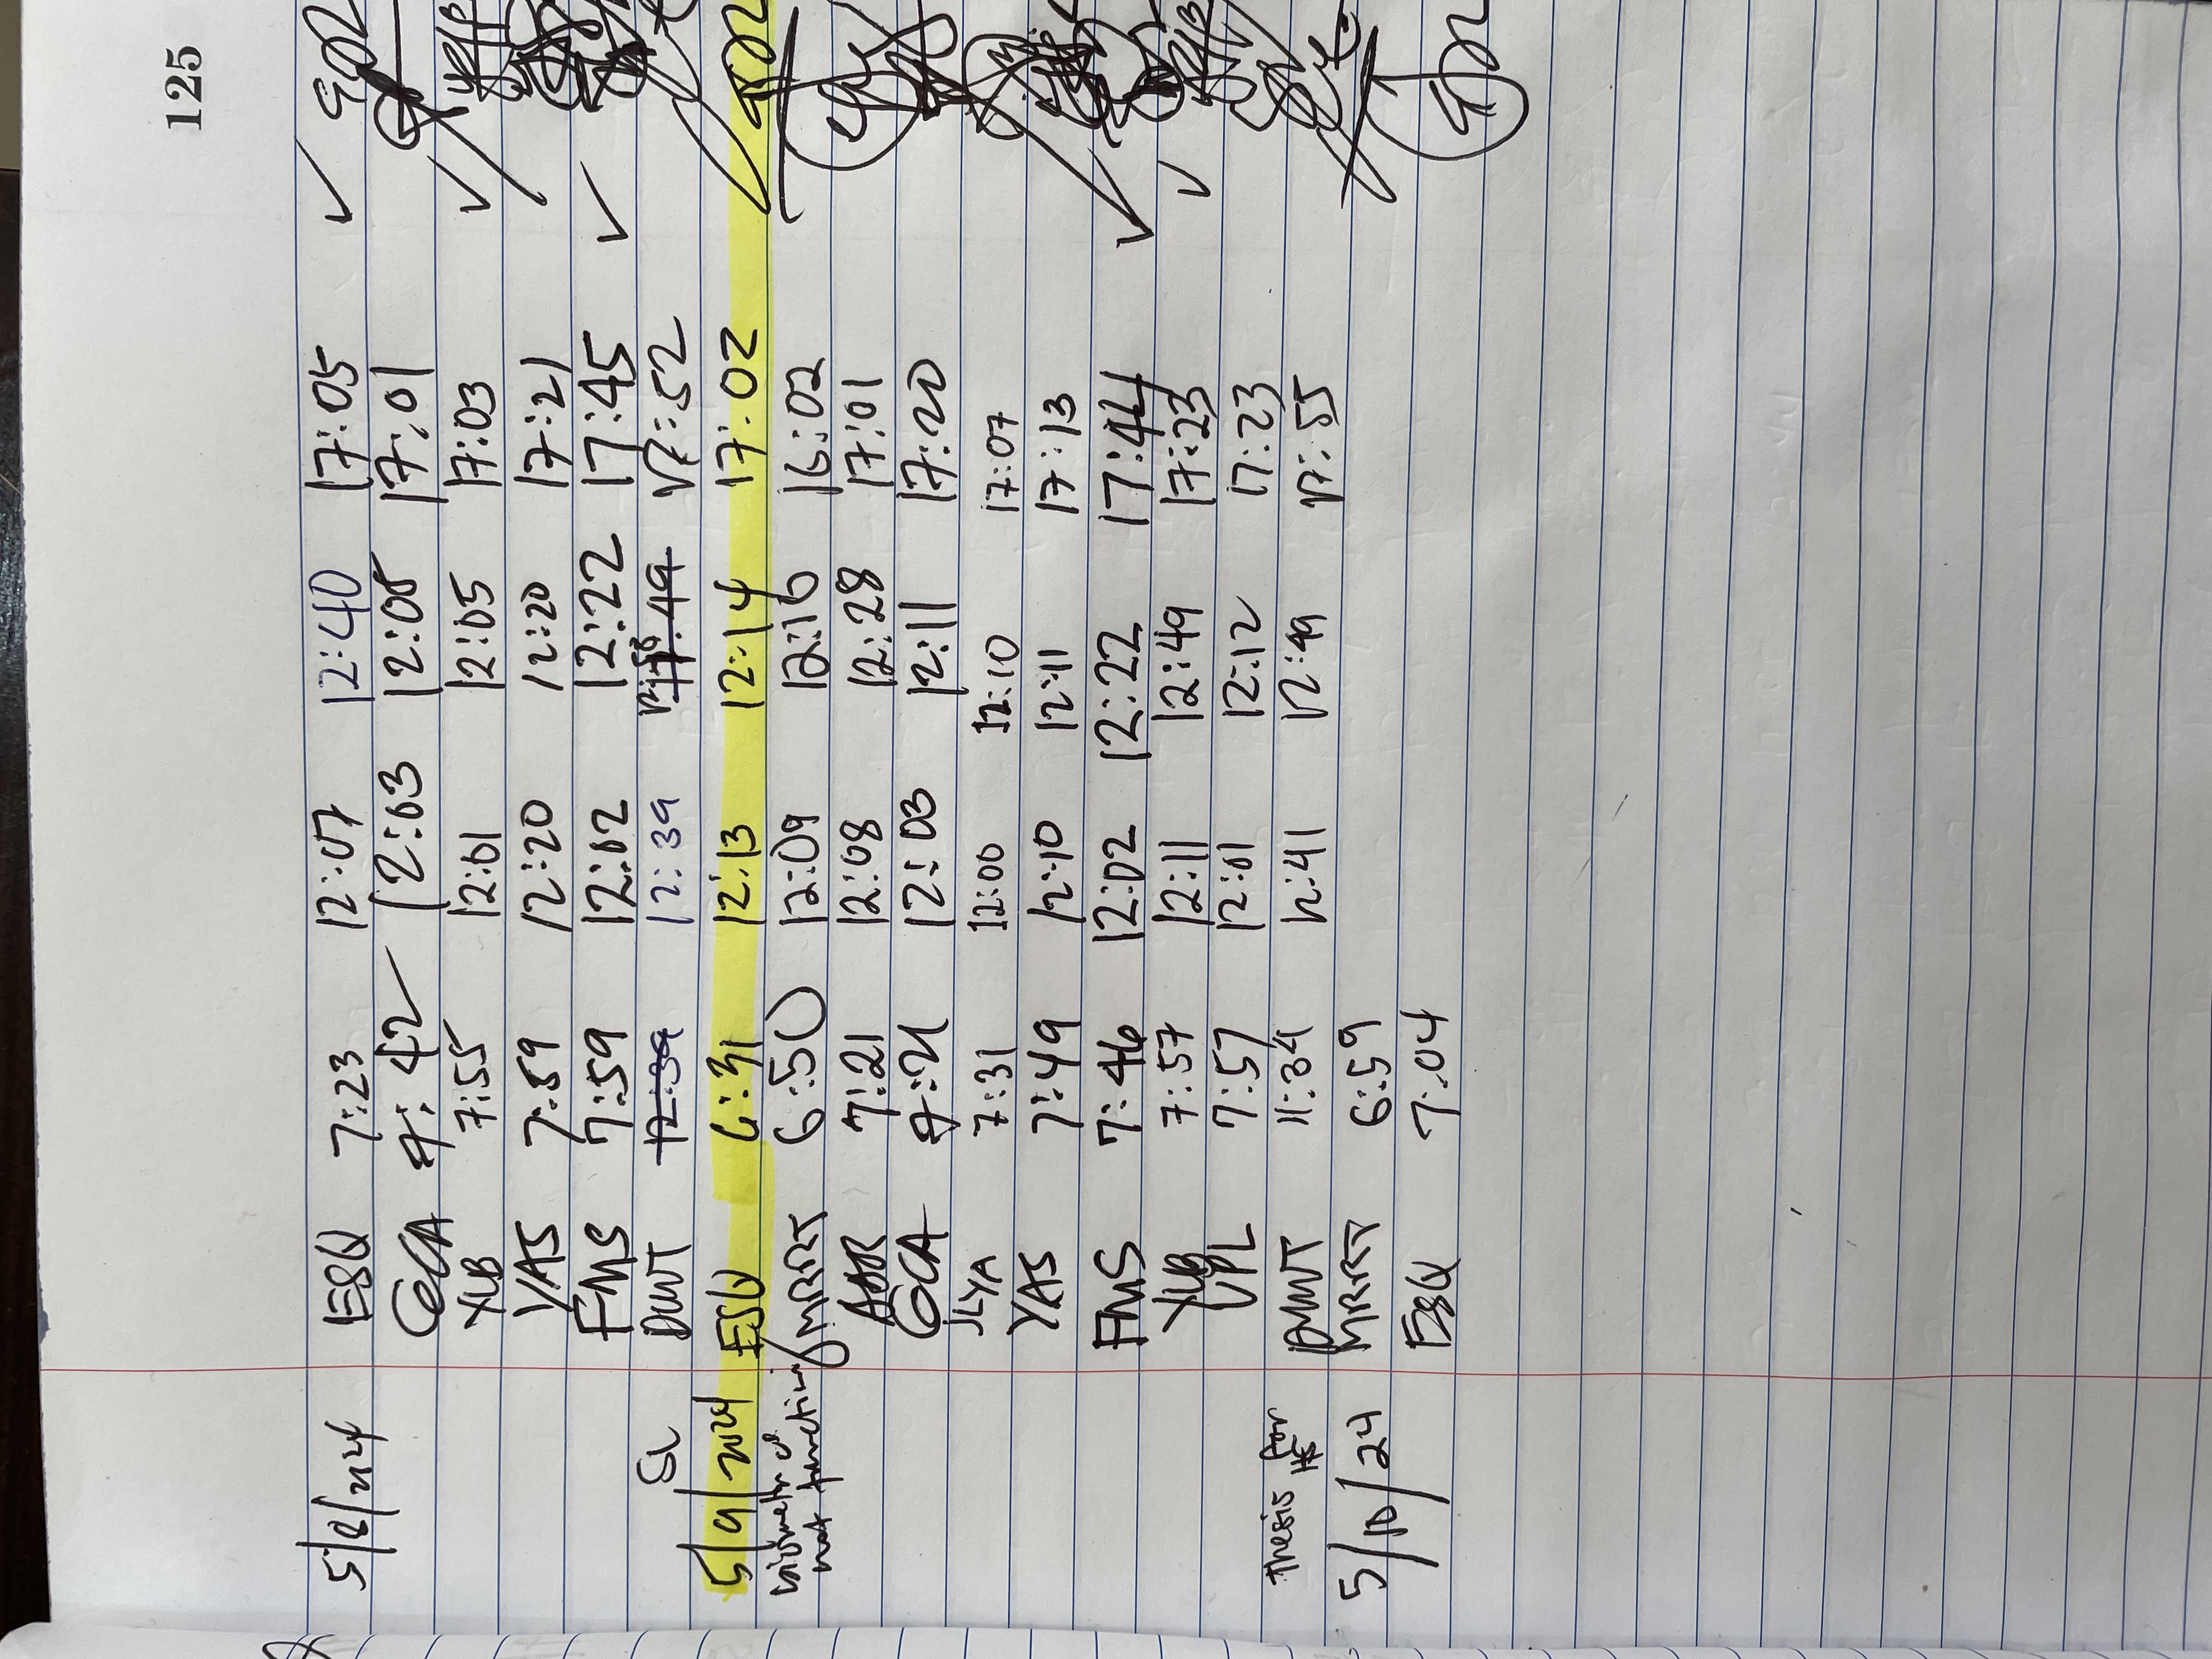 125
5/8/2024 ESQ 7:23 12:07 12:40 17:05
GCA 7:42 12:03 12:05 17:01
YUB 7:55 12:01 12:05 17:03
YAS 7:59 12:20 12:20 17:21
FMS 7:59 12:02 12:22 17:45
SL DWT 12:39 12:39 17:49 17:52
5/9/2024 ESQ 6:31 12:13 12:14 17:02
biometric MRRT 6:50 12:09 12:16 16:02
not 7:21 12:08 12:28 17:01
GCA 7:21 12:03 12:11 17:20
JLYA 7:31 12:00 12:10 17:07
YAS 7:49 12:10 12:11 17:13
FMS 7:46 12:02 12:22 17:44
YUB 7:57 12:11 12:49 17:23
VPL 7:57 12:01 12:12 17:23
Thesis for DWWT 11:34 12:41 12:49 17:55
5/10/24 MRRT 6:59
ESQ 7:04